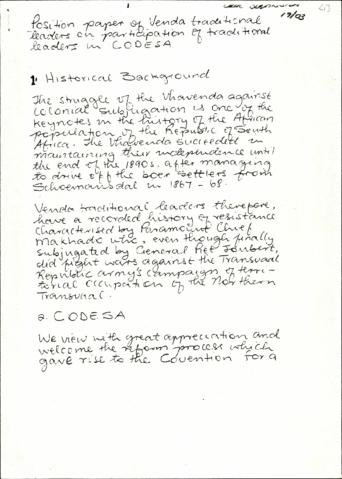 1
19/03
Position paper of Venda traditional
leaders on participation of traditional
leaders in CODESA
1. Historical Background
The struggle of the Vhavenda against
colonial subjugation is one of the
keynotes in the history of the African
population of the Republic of South
Africa. The Vhavenda succeeded in
maintaining their independence until
the end of the 1890s. after managing
to drive off the boer settlers from
Schoemansdal in 1867 - 68.
Venda traditional leaders therefore,
have a recorded history of resistance
characterised by Paramount Chief
Makhado who, even though finally
subjugated by General Piet Joubert,
did fight wars against the Transvaal
Republic army's campaign of terri-
torial occupation of the Northern
Transvaal.
2. CODESA
We view with great appreciation and
welcome the reform process which
gave rise to the Covention for a